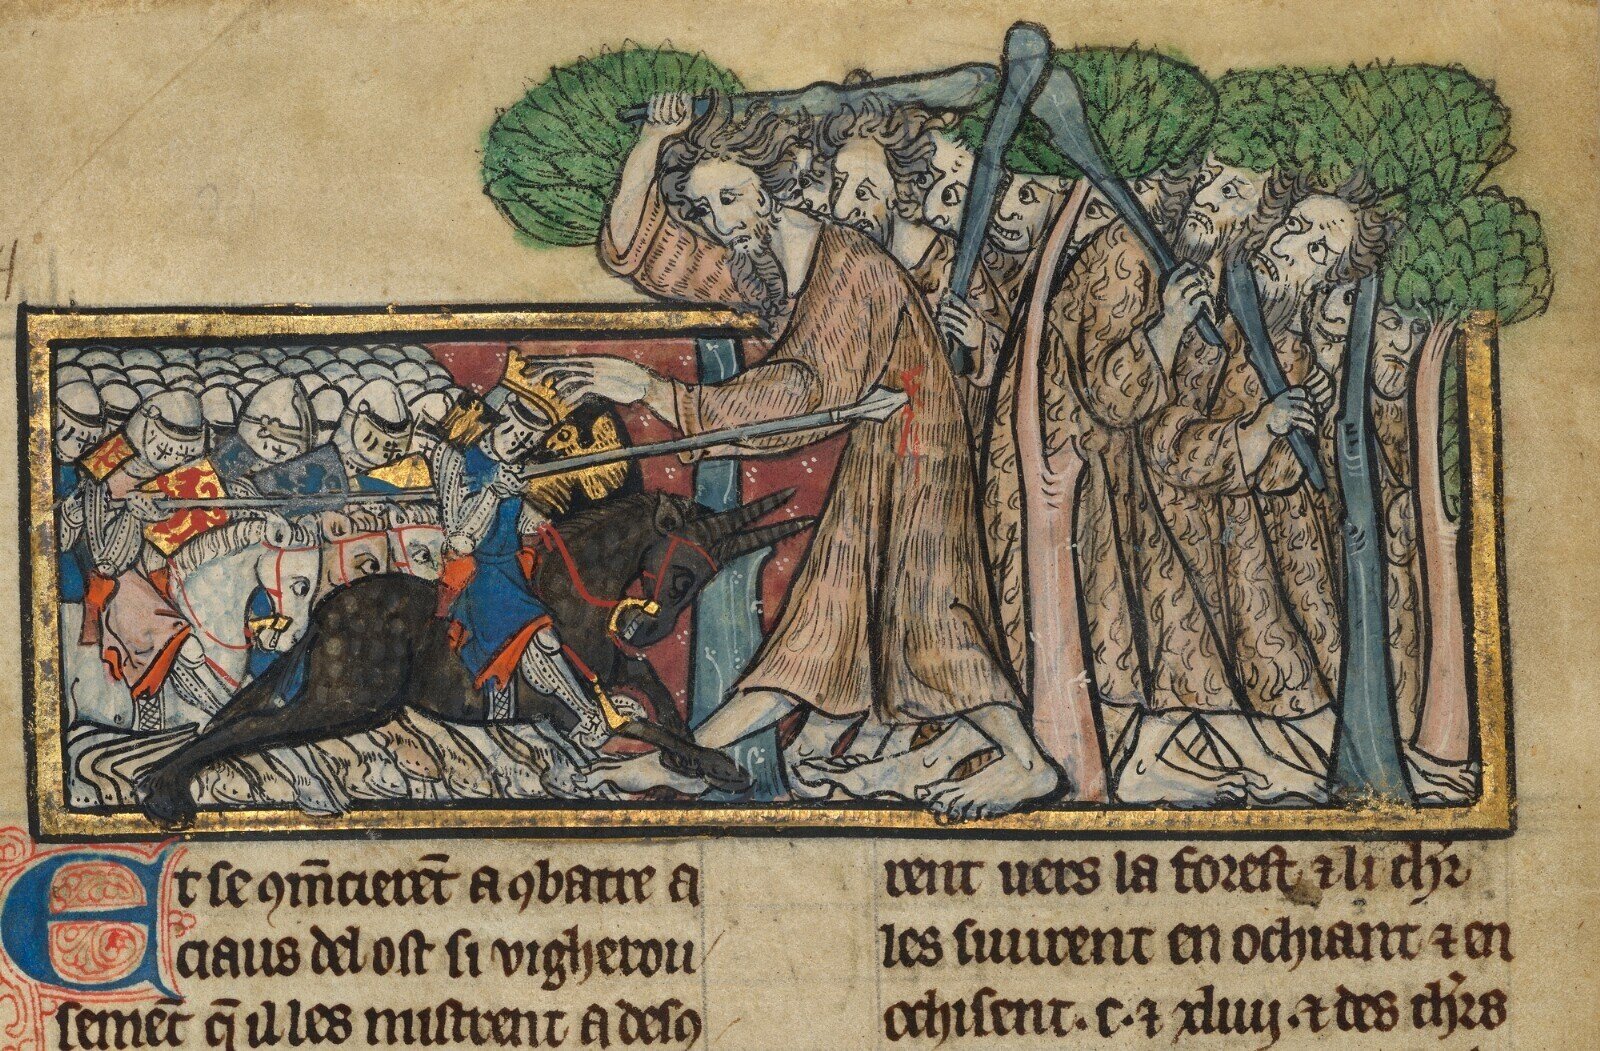 Et se ꝯm̄cierēt a ꝯbatre a
ciaus del ost si vigherou
semēt q̄ il les mistrent a desꝯ
rent uers la forest ⁊ li ch̄r
les siuirent en ochiant ⁊ en
ochisent .c. ⁊ xluij. ⁊ des ch̄rs